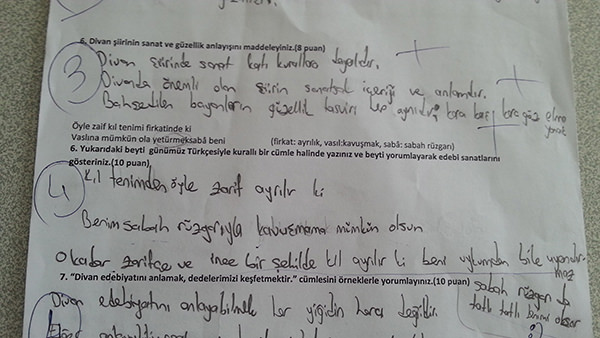 6. Divan şiirinin sanat ve güzellik anlayışını maddeleyiniz.(8 puan)
3
Divan şiirinde sanat katı kurallara dayalıdır.
Divanda önemli olan şiirin sanatsal içeriği ve anlamıdır.
Bahsedilen bayanların güzellik tasviri hep aynıdır; kara kaş kara göz elma yanak
Öyle zaif kıl tenimi firkatinde ki
Vaslına mümkün ola yetürmeksabâ beni (firkat: ayrılık, vasıl:kavuşmak, sabâ: sabah rüzgarı)
6. Yukarıdaki beyti günümüz Türkçesiyle kurallı bir cümle halinde yazınız ve beyti yorumlayarak edebi sanatlarını
gösteriniz.(10 puan)
4
Kıl tenimden öyle zarif ayrılır ki
Benim sabah rüzgarıyla kavuşmama mümkün olsun
O kadar zarifçe ve ince bir şekilde kıl ayrılır ki beni uykumdan bile uyandırmaz
sabah rüzgarı da
tatlı tatlı
7. "Divan edebiyatını anlamak, dedelerimizi keşfetmektir." cümlesini örneklerle yorumlayınız.(10 puan)
Divan edebiyatını anlayabilmek her yiğidin harcı değildir.